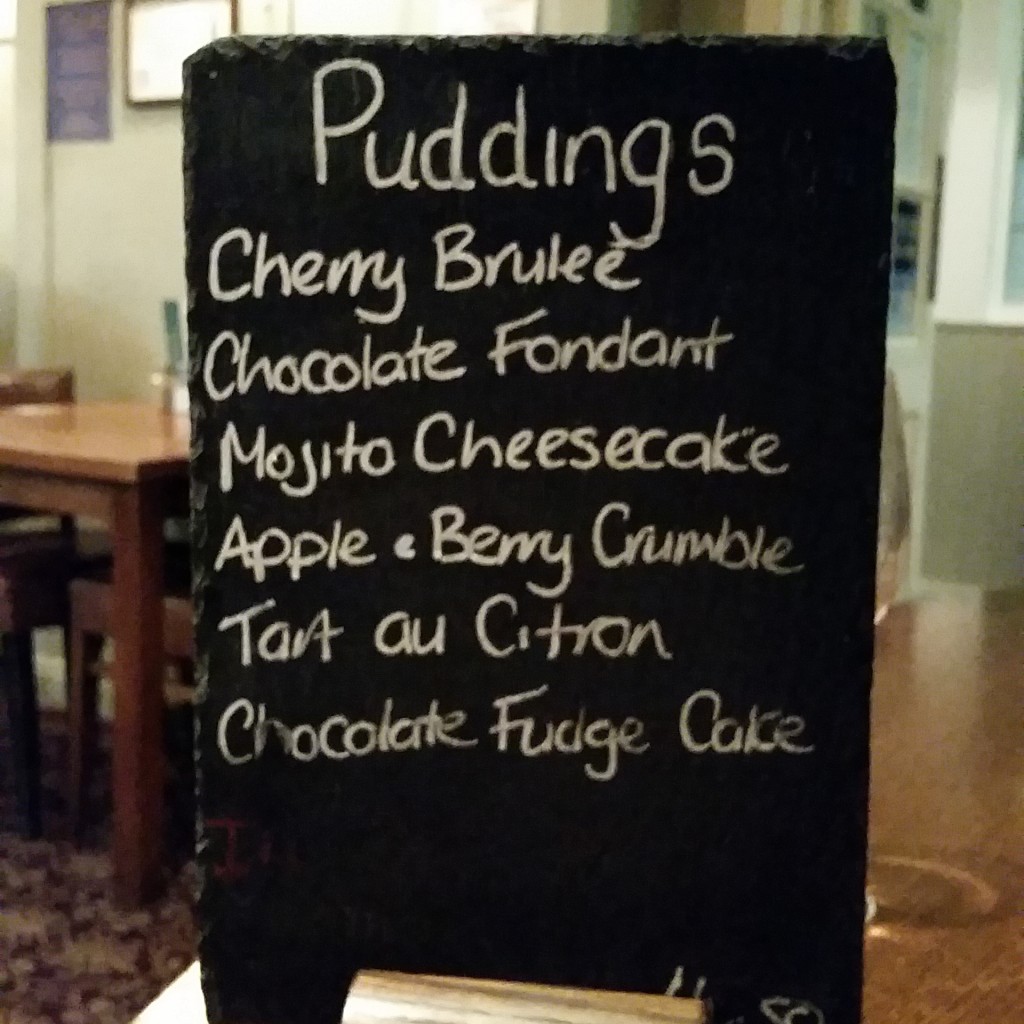 Puddings
Cherry Bruleé
Chocolate Fondant
Mojito Cheesecake
Apple & Berry Crumble
Tart au Citron
Chocolate Fudge Cake